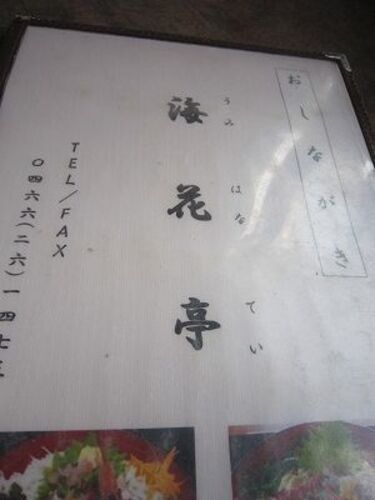 おしながき
海花亭
うみ はな てい
TEL/FAX
〇四六六(二六)一四七三